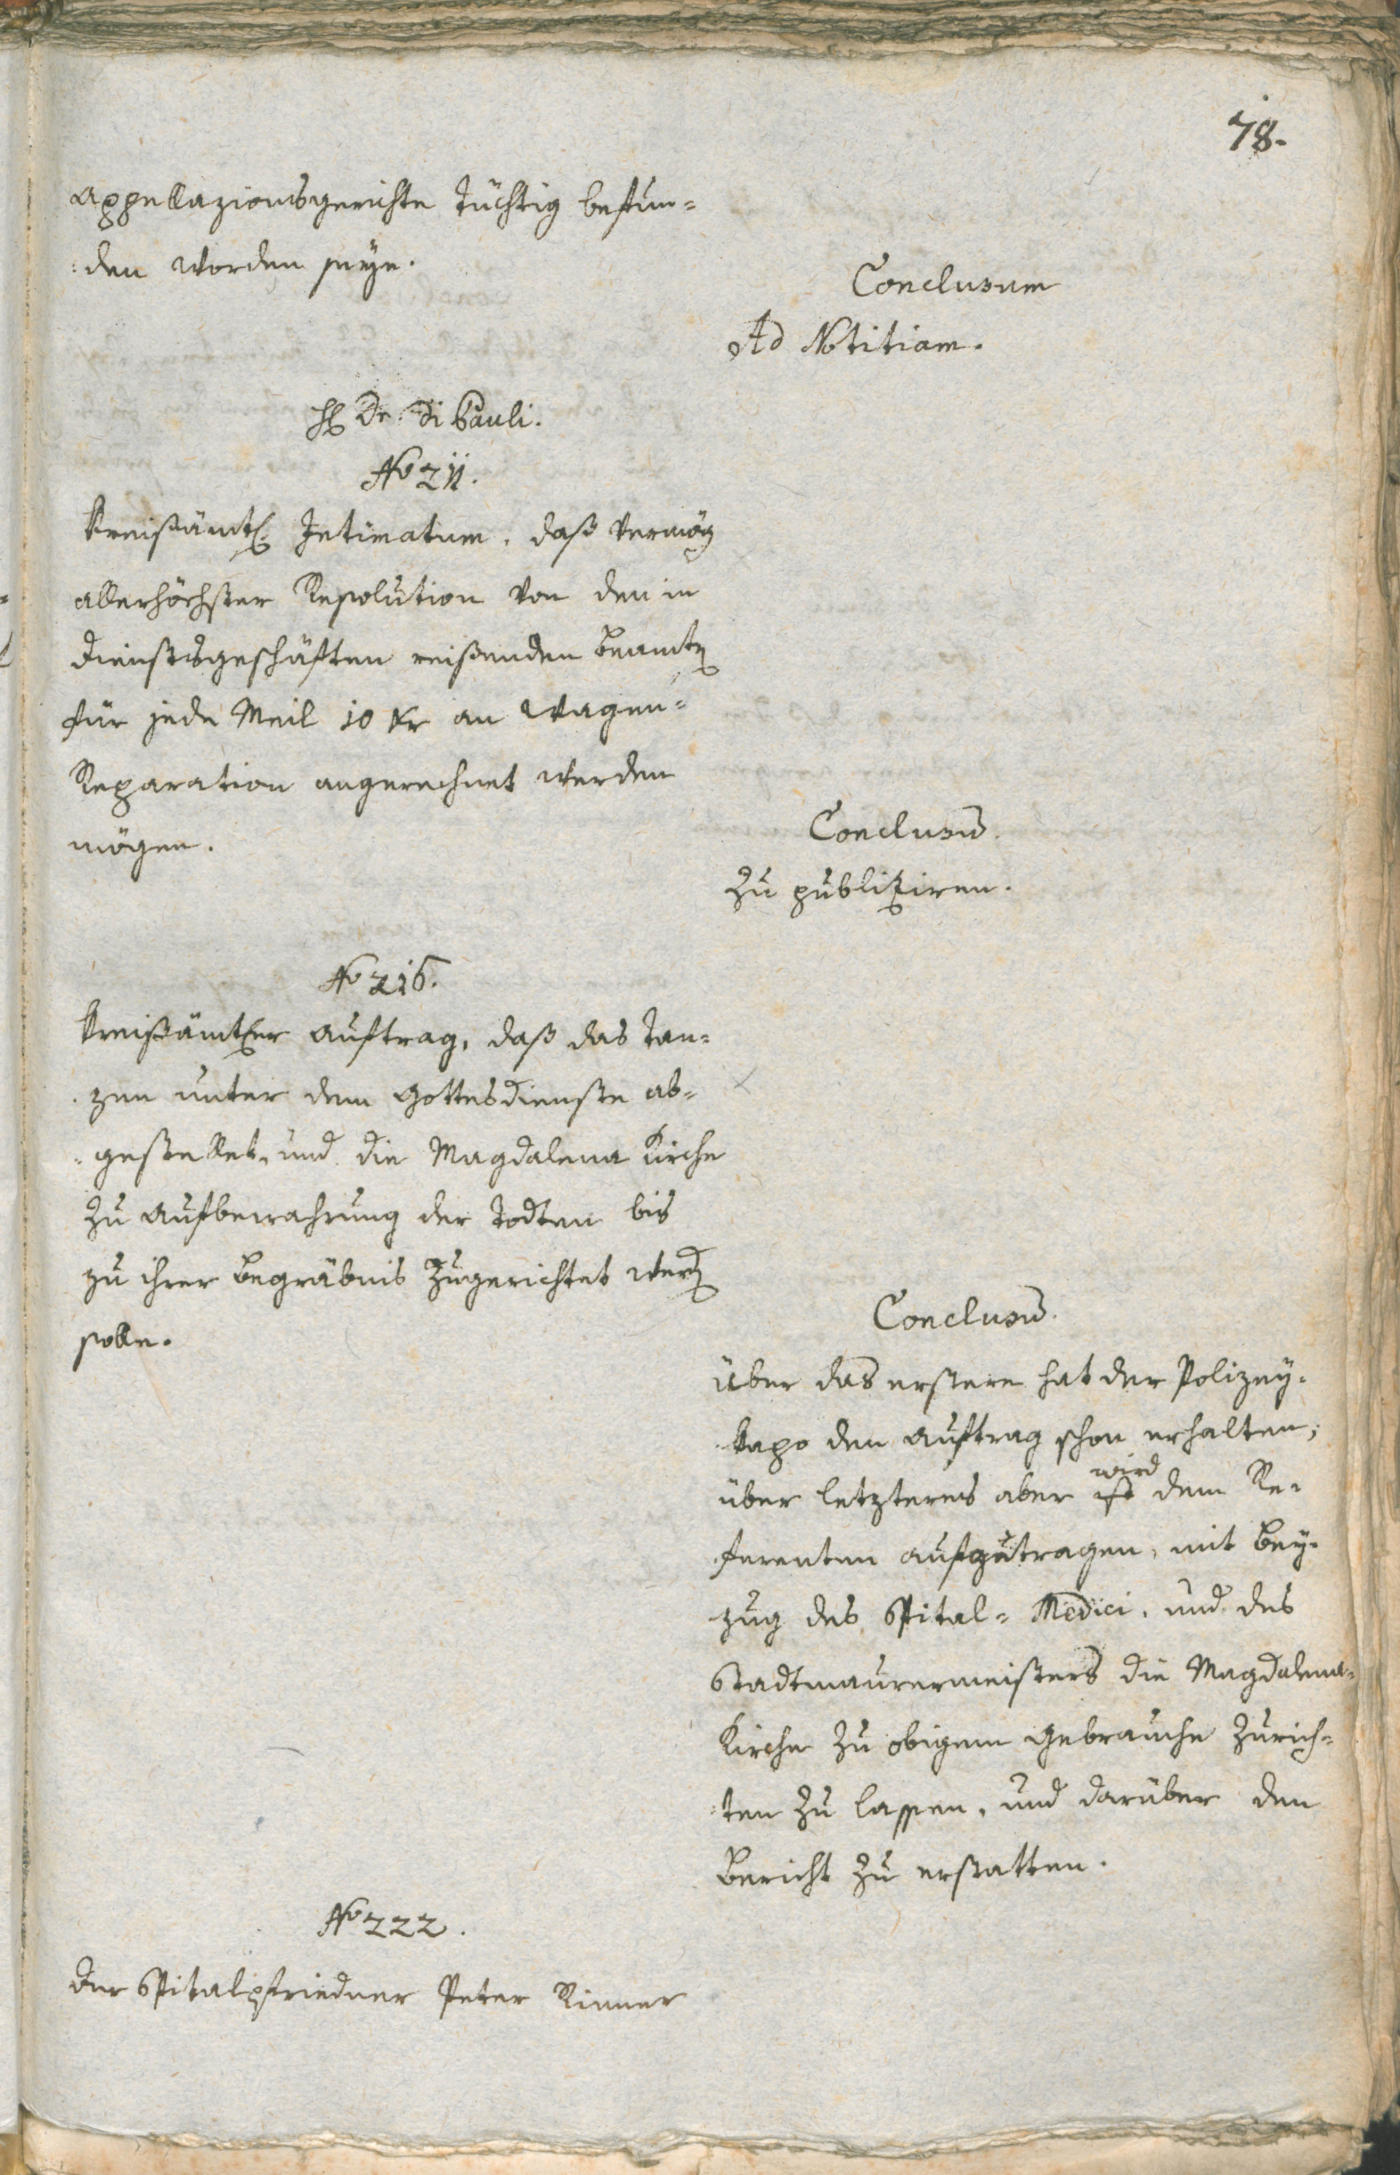 78.
Appellazionsgerichte tüchtig befun-
den worden seye.
Conclusum
Ad Notitiam.
H Dr. Di Pauli.
No 211.
Kreisämtl. Intimatum, daß vermög
allerhöchster Resolution von den in
Dienstsgeschäften reisenden Beamten
für jede Meil 10 Kr an Wagen-
Reparation angerechnet werden
mögen.
Conclusum.
Zu publiziren.
No 216.
Kreisämtler Auftrag, daß das Tan-
zen unter dem Gottesdienste ab-
gestellet, und die Magdalena Kirche
zu Aufbewahrung der Todten bis
zu ihrer Begräbnis zugerichtet werden
solle.
Conclusum.
Über das erstere hat der Polizey-
kapo den Auftrag schon erhalten;
über letzteres aber ist wird dem Re-
ferenten aufzutragen, mit Bey-
zug des Spital-Medici, und des
Stadtmaurermeisters die Magdalena-
Kirche zu obigem Gebrauche zurich-
ten zu lassen, und darüber den
Bericht zu erstatten.
No 222.
Der Spitalpfriedner Peter Rinner